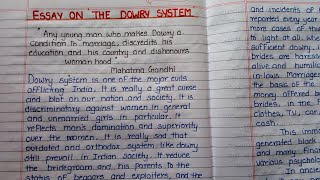 ESSAY ON THE DOWRY SYSTEM
"Any young man who makes Dowry a
condition to marriage, discredits his
education and his country and dishonours
woman hood".
Mahatma Gandhi
Dowry system is one of the major evils
afflicting India. It is really a great curse
and blot on our nation and society. It is
discriminatory against women in general
and unmarried girls in particular. It
reflects man's domination and superiority
over the women. It is really sad that
outdated and orthodox system like dowry
still prevail in Indian society. It reduce
the bridegroom and his parents to the
status of beggars and exploiters, and the
and incidents of
reported every year
more cases of this
to light at all. wh
sufficient dowry,
brides are harass
alive and humilia
in-laws. Marriages
the basis of the
money offered b
brides, in the f
clothes, T.V., car,
cash.
This immo
generated black
and many. Finan
various psycholo
In ancie